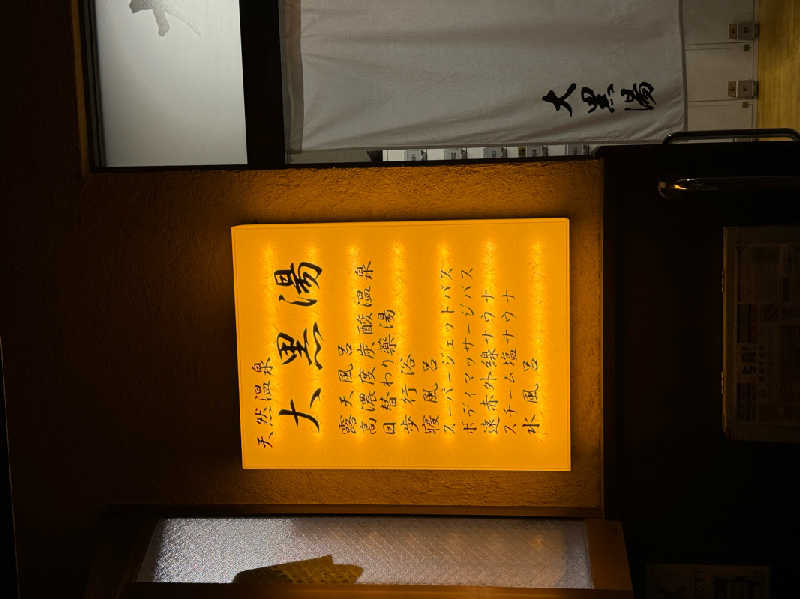 大黒湯
天然温泉
大黒湯
露天風呂
高濃度炭酸温泉
日替わり薬湯
歩行浴
寝風呂
スーパージェットバス
ボディマッサージバス
遠赤外線サウナ
スチーム塩サウナ
水風呂